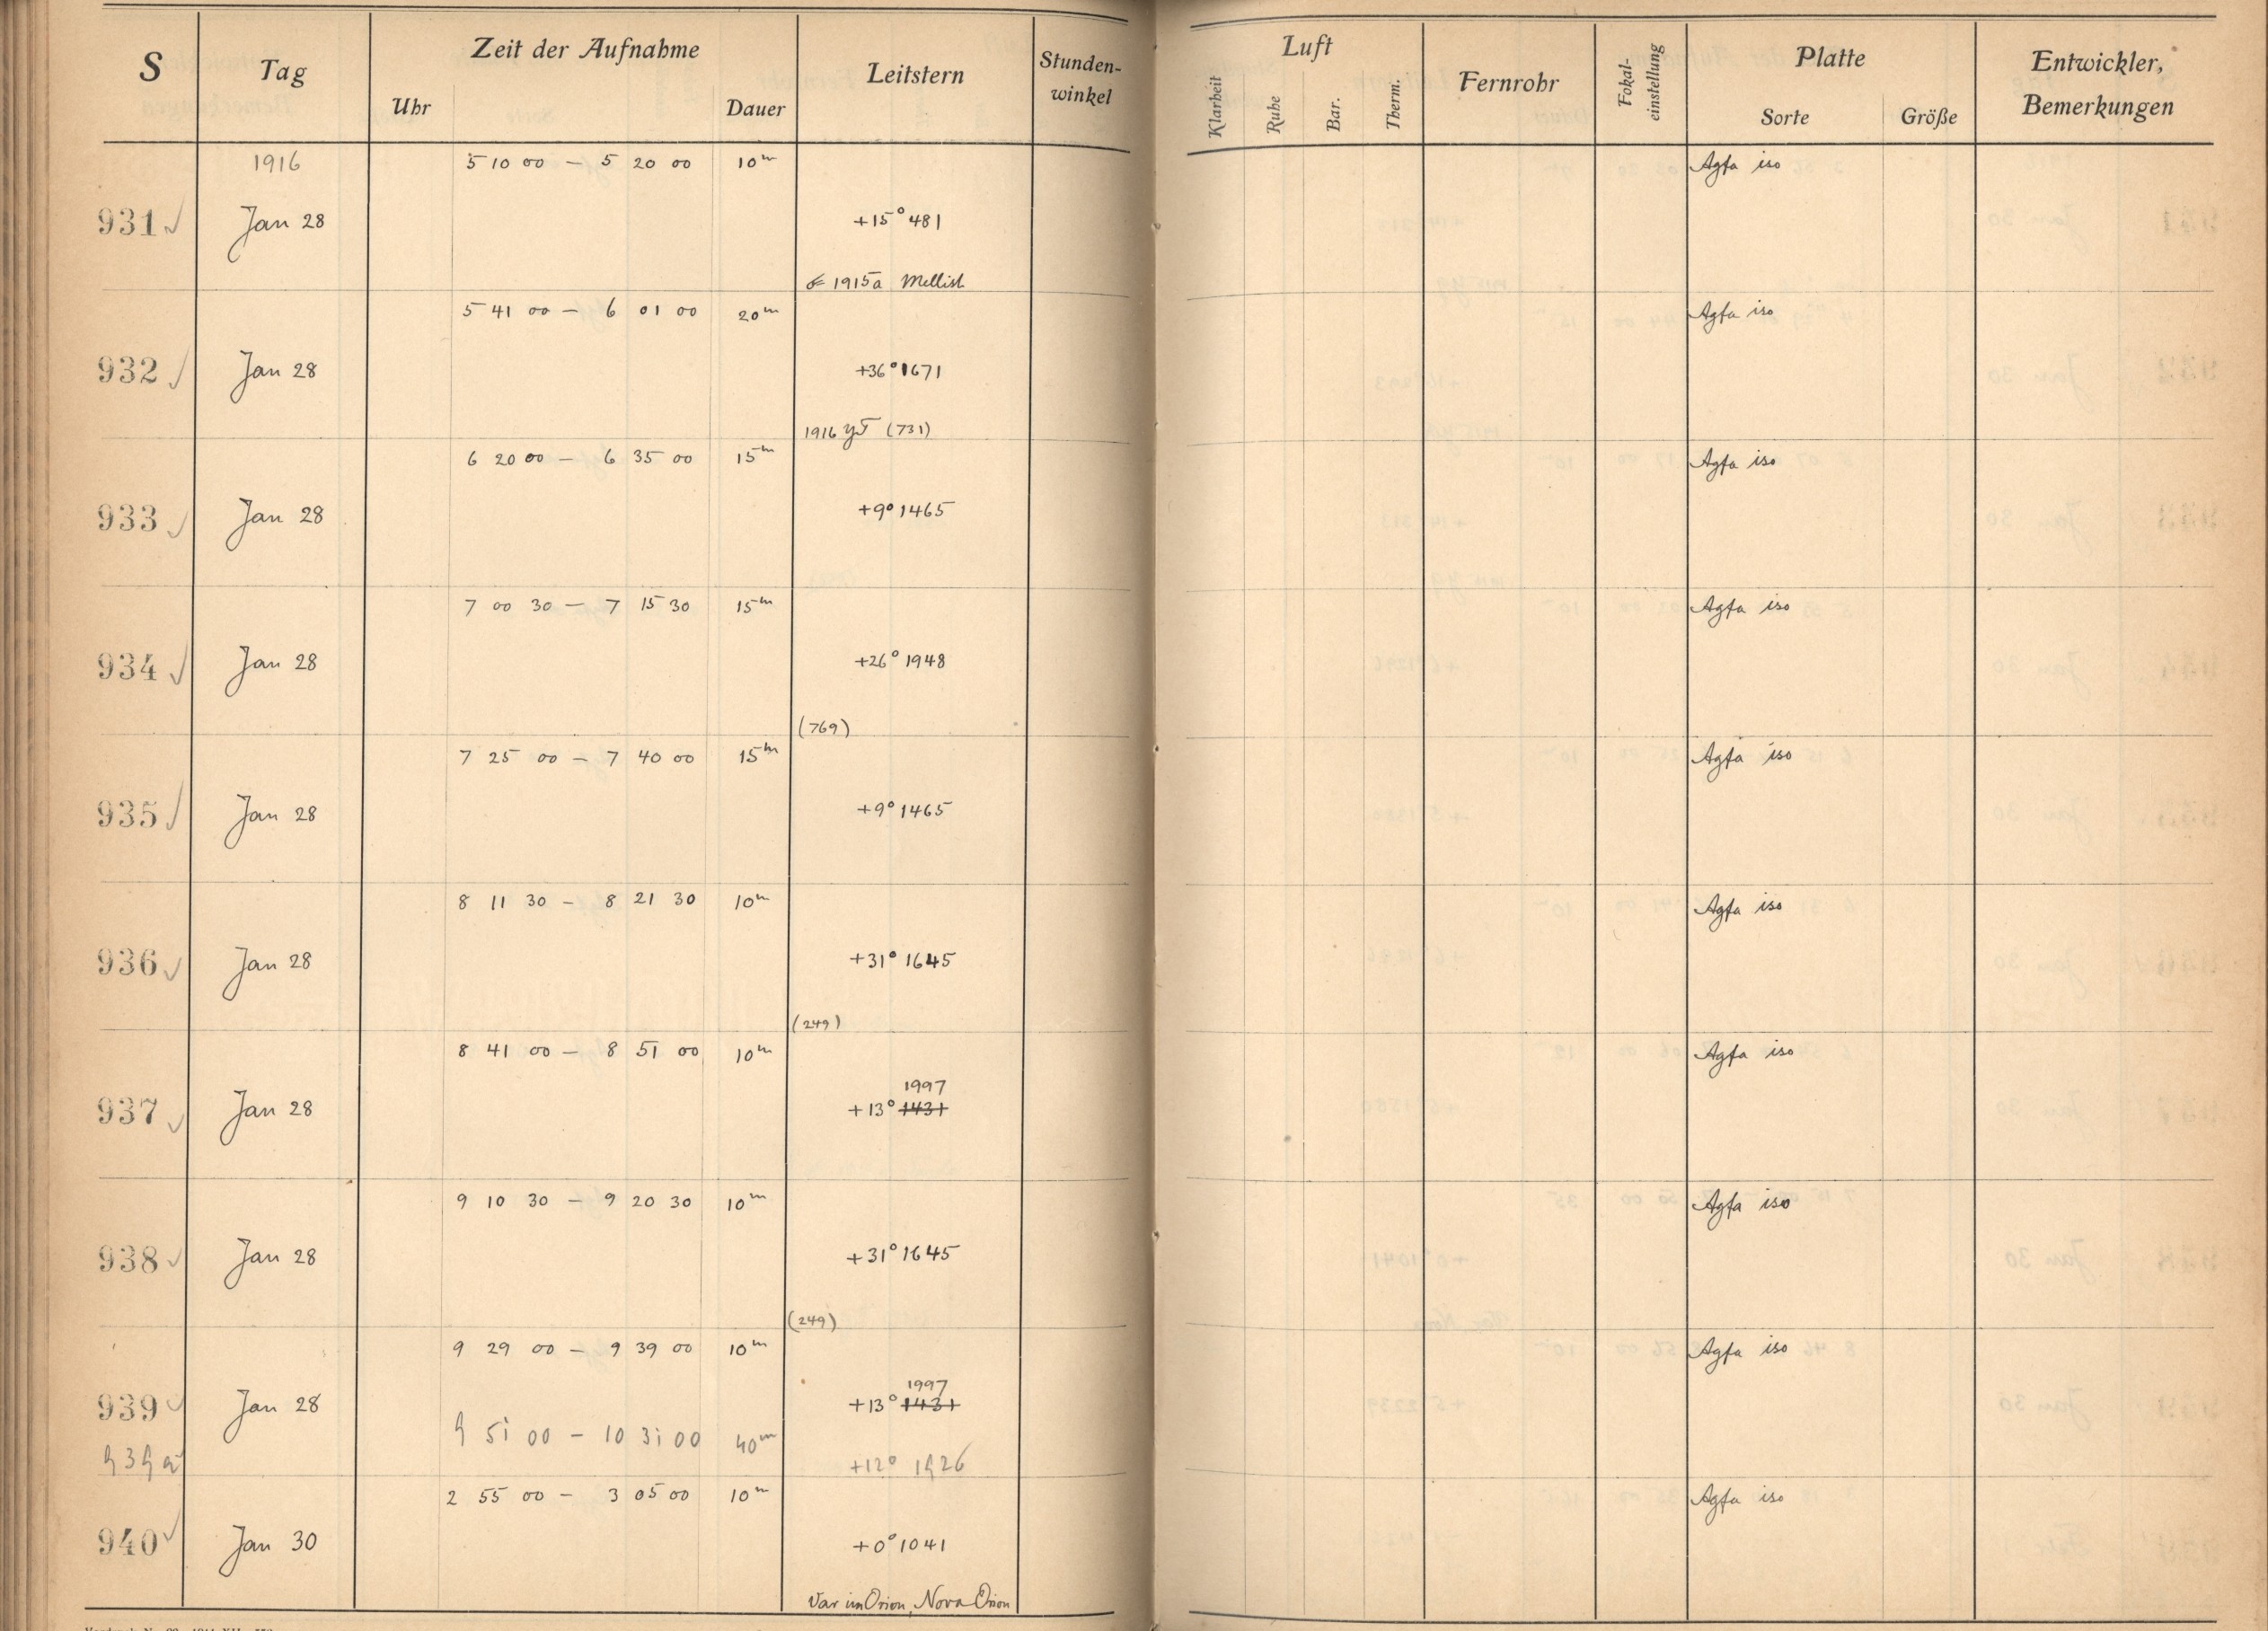 S Tag Zeit der Aufnahme Leitstern Stunden-winkel Luft Fernrohr Fokal-einstellung Platte Entwickler, Bemerkungen
Uhr Dauer Klarheit Ruhe Bar. Therm. Sorte Größe
1916 5 10 00 — 5 20 00 10m Agfa iso
931 Jan 28 +15° 481
1915a Mellish
5 41 00 — 6 01 00 20m Agfa iso
932 Jan 28 +36° 1671
1916 (731)
6 20 00 — 6 35 00 15m Agfa iso
933 Jan 28 +9° 1465
7 00 30 — 7 15 30 15m Agfa iso
934 Jan 28 +26° 1948
(769)
7 25 00 — 7 40 00 15m Agfa iso
935 Jan 28 +9° 1465
8 11 30 — 8 21 30 10m Agfa iso
936 Jan 28 +31° 1645
(249)
8 41 00 — 8 51 00 10m Agfa iso
1997
937 Jan 28 +13° 1431
9 10 30 — 9 20 30 10m Agfa iso
938 Jan 28 +31° 1645
(249)
9 29 00 — 9 39 00 10m Agfa iso
1997
939 Jan 28 +13° 1431
9 51 00 — 10 31 00 40m
939a +12° 1926
2 55 00 — 3 05 00 10m Agfa iso
940 Jan 30 +0° 1041
Var im Orion, Nova Orion